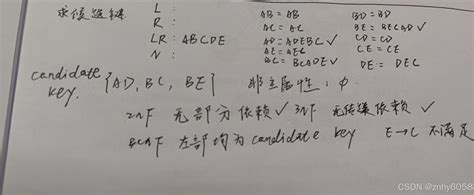 求候选键 L: AB = AB BD = BD
R: AC = AC BE = BECAD✓
LR: ABCDE AD = ADEBC✓ CD = CD
N: AE = AEC CE = CE
BC = BCADEV✓ DE = DEC
candidate key. {AD, BC, BE} 非主属性: φ
2NF 无部分依赖✓ 3NF 无传递依赖✓
BCNF 左部均为 candidate key E→C 不满足
CSDN @znhy6058